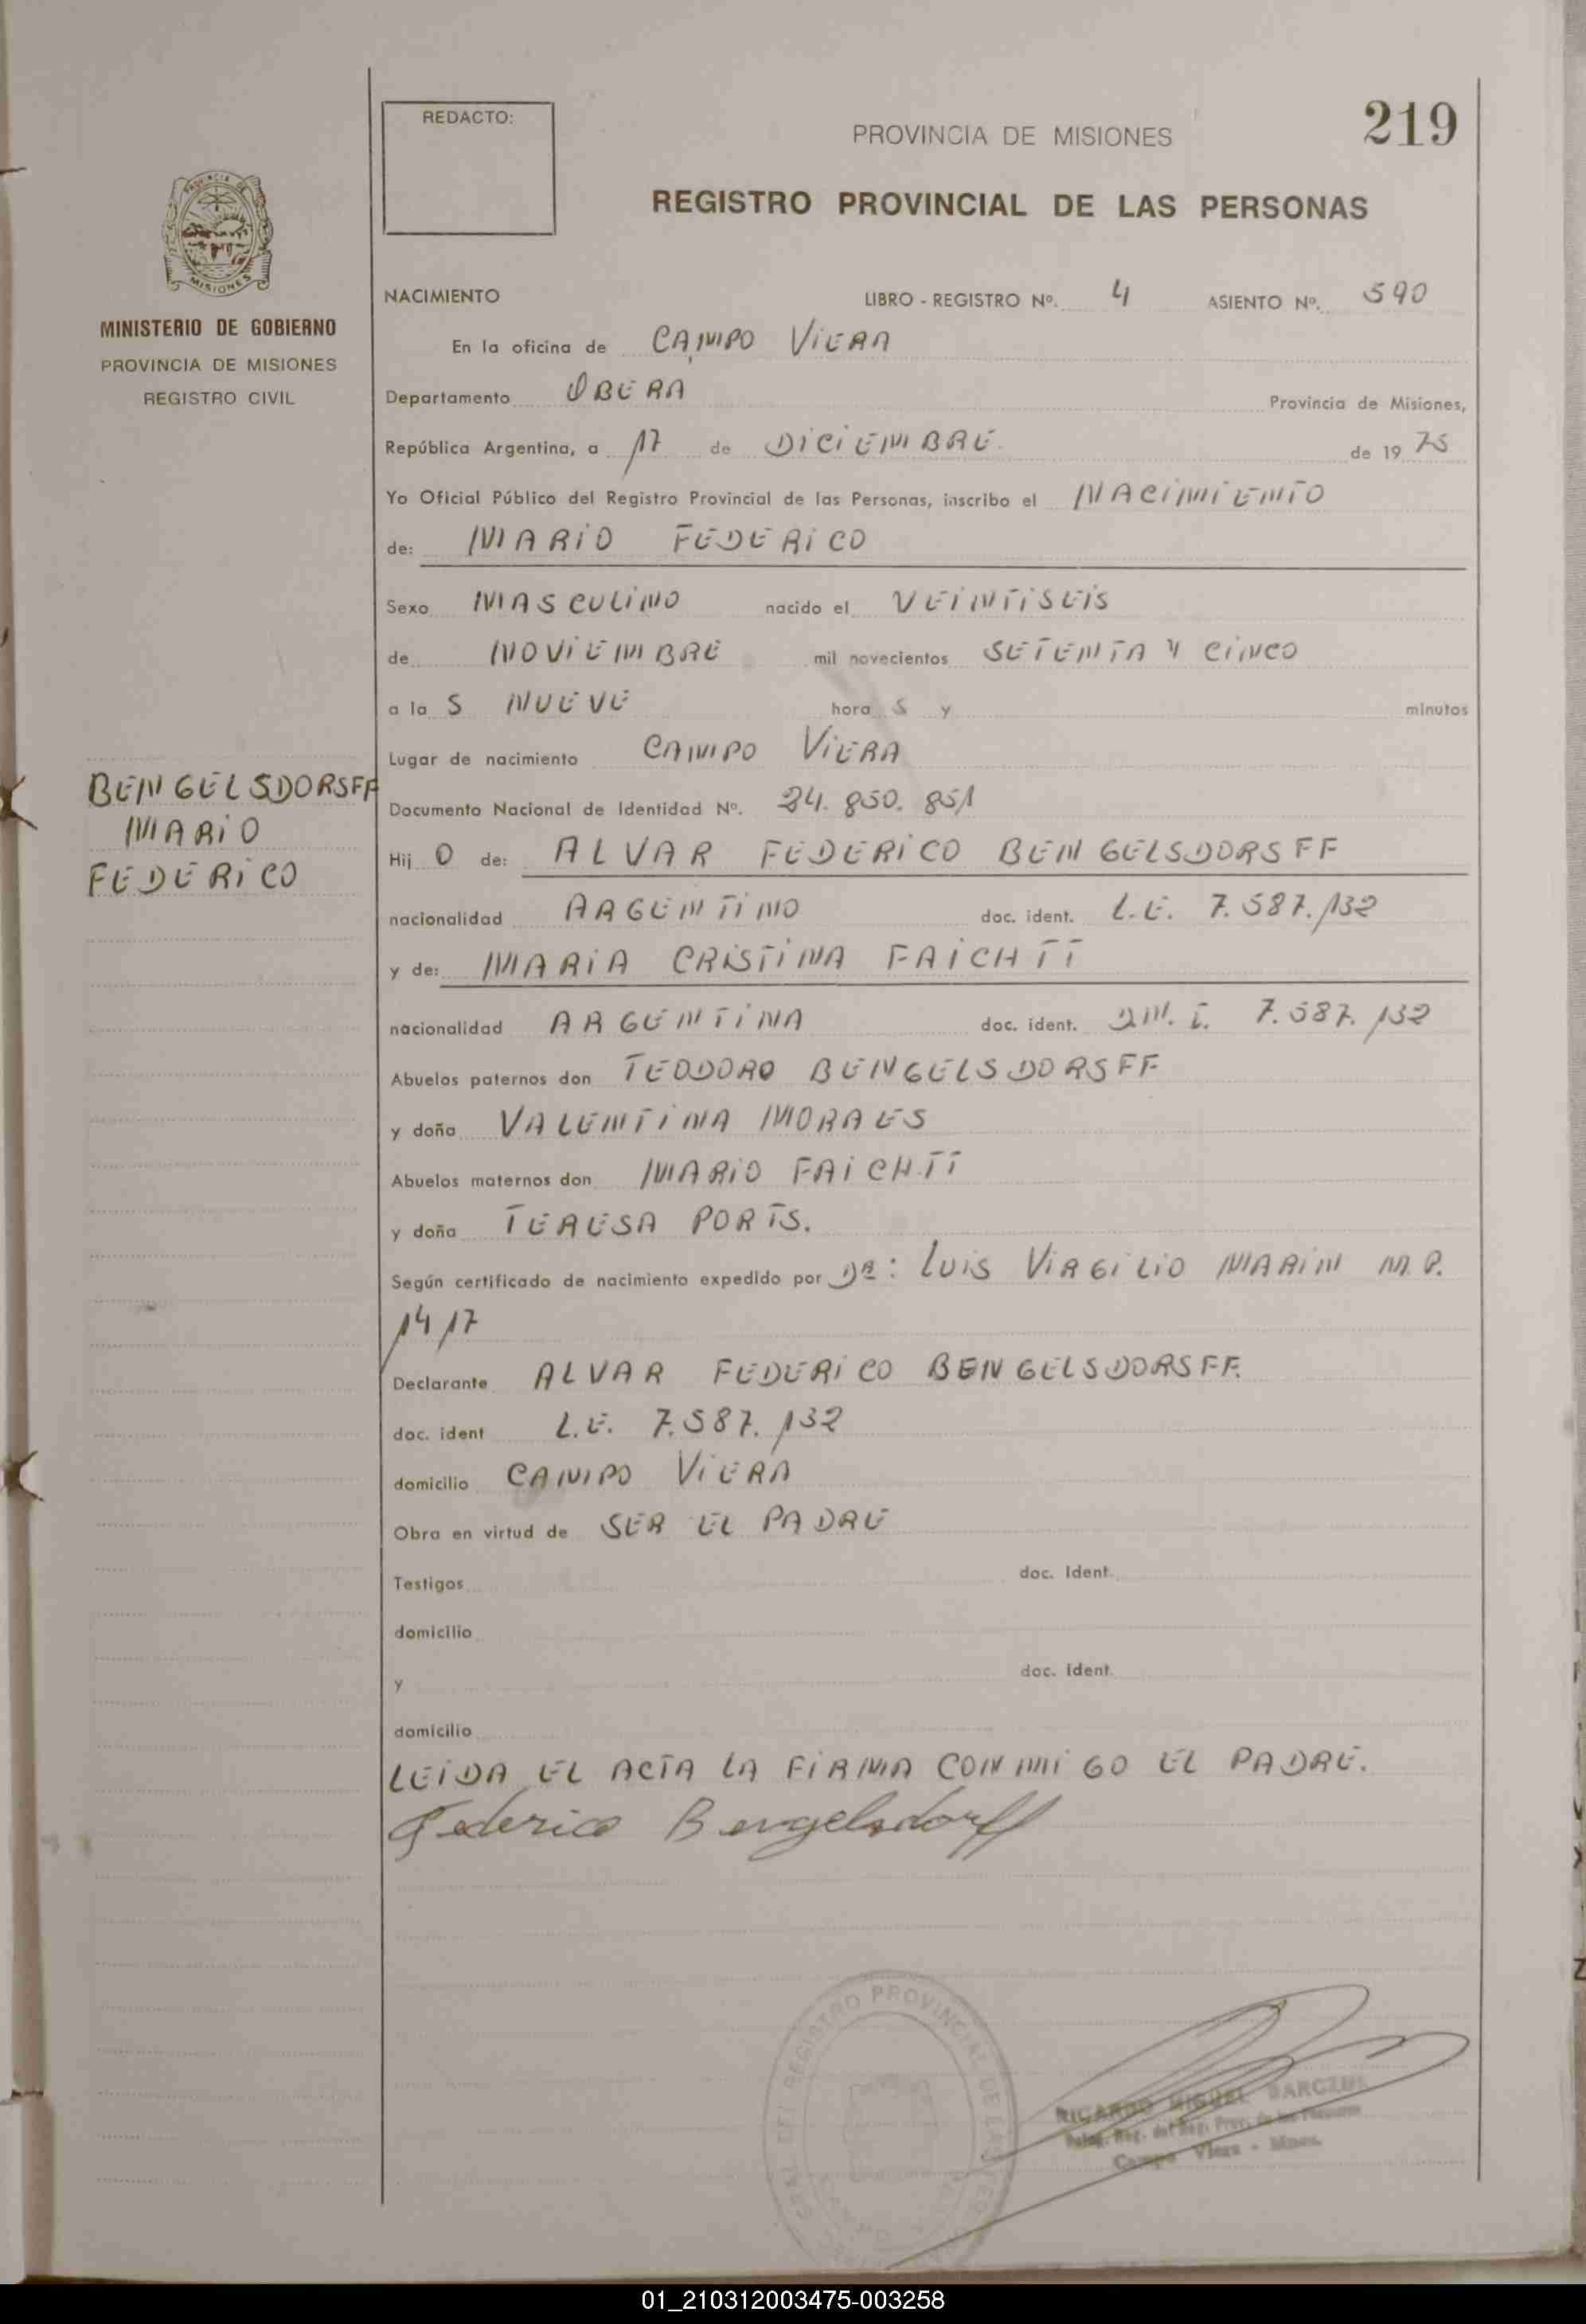 REDACTO:
PROVINCIA DE MISIONES
219
REGISTRO PROVINCIAL DE LAS PERSONAS
PROVINCIA DE
MISIONES
MINISTERIO DE GOBIERNO
PROVINCIA DE MISIONES
REGISTRO CIVIL
NACIMIENTO LIBRO - REGISTRO Nº. 4 ASIENTO Nº. 590
En la oficina de CAMPO VIERA
Departamento OBERA Provincia de Misiones,
República Argentina, a 17 de DICIEMBRE de 19 75
Yo Oficial Público del Registro Provincial de las Personas, inscribo el NACIMIENTO
de: MARIO FEDERICO
Sexo MASCULINO nacido el VEINTISEIS
de NOVIEMBRE mil novecientos SETENTA Y CINCO
a la S NUEVE hora S y minutos
Lugar de nacimiento CAMPO VIERA
BENGELSDORSFF
MARIO
FEDERICO
Documento Nacional de Identidad Nº. 24.850.851
Hij O de: ALVAR FEDERICO BENGELSDORSFF
nacionalidad ARGENTINO doc. ident. L.E. 7.587.132
y de: MARIA CRISTINA FAICHTT
nacionalidad ARGENTINA doc. ident. 7.587.132
Abuelos paternos don TEODORO BENGELSDORSFF
y doña VALENTINA MORAES
Abuelos maternos don MARIO FAICHTT
y doña TERESA PORTS.
Según certificado de nacimiento expedido por DR: LUIS VIRGILIO MARIN M.P.
1417
Declarante ALVAR FEDERICO BENGELSDORSFF.
doc. ident L.E. 7.587.132
domicilio CAMPO VIERA
Obra en virtud de SER EL PADRE
Testigos doc. Ident.
domicilio
y doc. Ident.
domicilio
LEIDA EL ACTA LA FIRMA CONMIGO EL PADRE.
Federico Bengelsdorff
REGISTRO PROVINCIAL DE LAS
RICARDO MIGUEL
Campo Viera - Mnes.
01_210312003475-003258